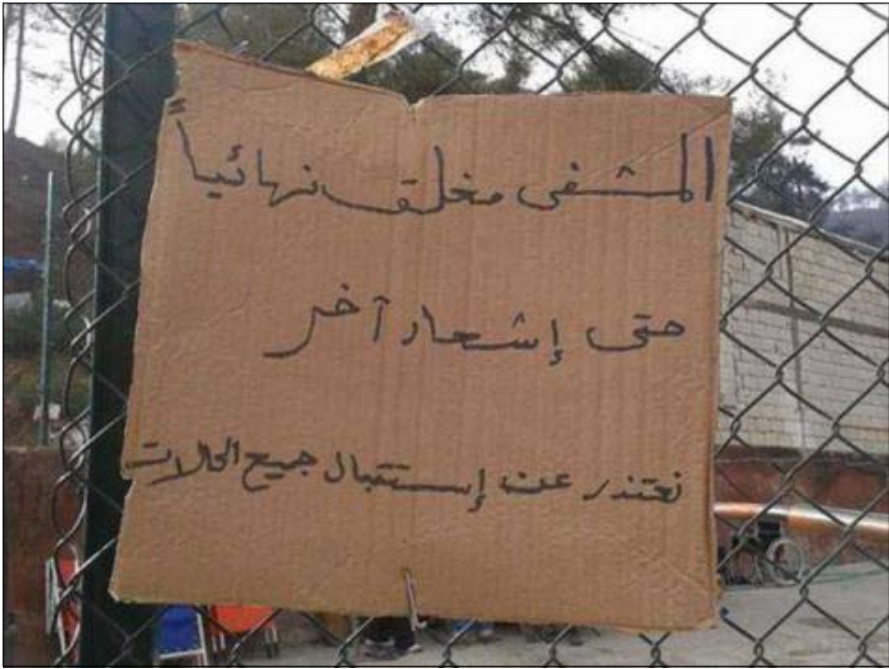 المشفى مغلق نهائياً
حتى إشعار آخر
نعتذر عن إستقبال جميع الحالات